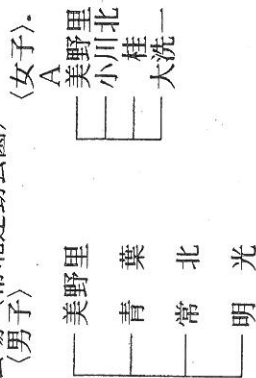 〈男子〉
美野里
青葉
常北
明光
〈女子〉
A
美野里
小川北
桂
大洗一